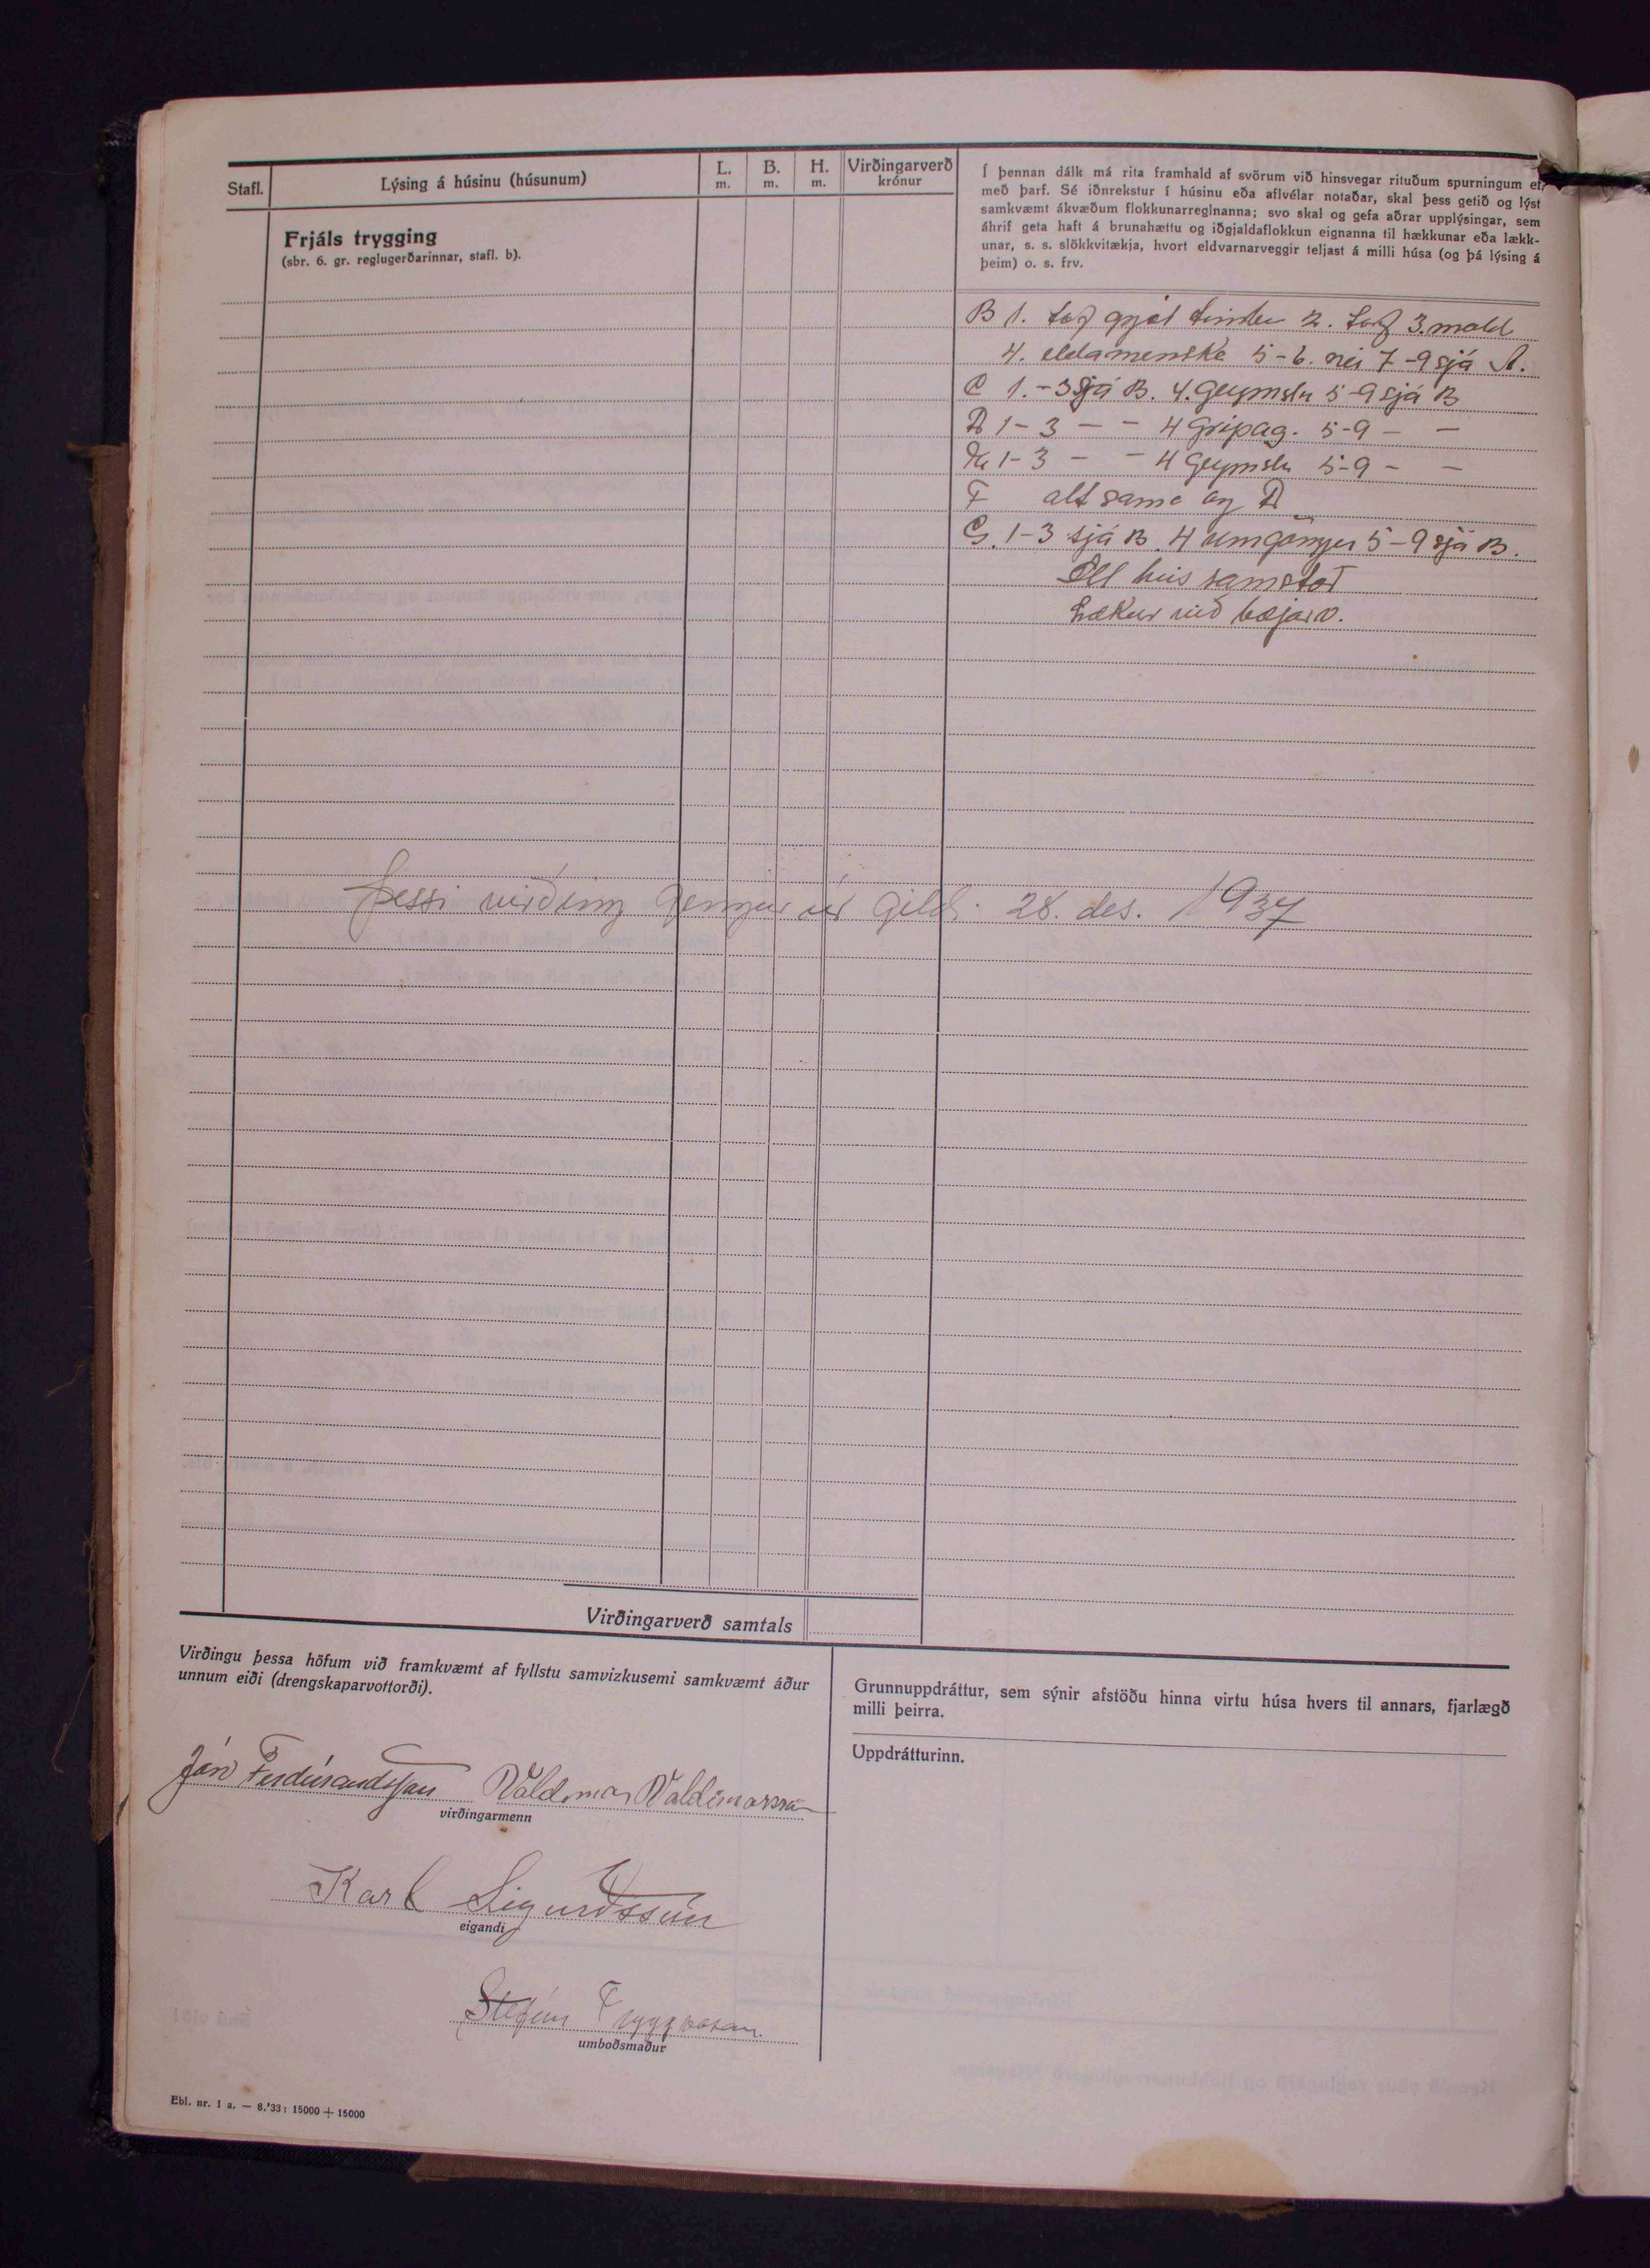 Stafl.
Lýsing á húsinu (húsunum)
L.
m.
B.
m.
H.
m.
Virðingarverð
krónur
Frjáls trygging
(sbr. 6. gr. reglugerðarinnar, stafl. b).
Í þennan dálk má rita framhald af svörum við hinsvegar rituðum spurningum ef
með þarf. Sé iðnrekstur í húsinu eða aflvélar notaðar, skal þess getið og lýst
samkvæmt ákvæðum flokkunarreglnanna; svo skal og gefa aðrar upplýsingar, sem
áhrif geta haft á brunahættu og iðgjaldaflokkun eignanna til hækkunar eða lækk-
unar, s. s. slökkvitækja, hvort eldvarnarveggir teljast á milli húsa (og þá lýsing á
þeim) o. s. frv.
B 1. torf grjót timbur 2. torf 3. mold
4. eldamenska 5-6. nei 7-9 sjá A.
C 1.-3 sjá B. 4. Geymsla 5-9 sjá B
D 1-3 - - 4 Gripag. 5-9 - -
1-3 - - 4 Geymsla 5-9 - -
F alt sama og D
G. 1-3 sjá B. 4 umgöngur 5-9 sjá B.
Öll hús samstæð
Lækur við bæjarv.
Þessi virðing gengur úr gildi 28. des. 1937
Virðingarverð samtals
Virðingu þessa höfum við framkvæmt af fyllstu samvizkusemi samkvæmt áður
unnum eiði (drengskaparvottorði).
Jón Ferdínandsson Valdemar Valdimarsson
virðingarmenn
Karl Sigurðsson
eigandi
Stefán Tryggvason.
umboðsmaður
Grunnuppdráttur, sem sýnir afstöðu hinna virtu húsa hvers til annars, fjarlægð
milli þeirra.
Uppdrátturinn.
Ebl. nr. 1 a. — 8.'33: 15000 + 15000